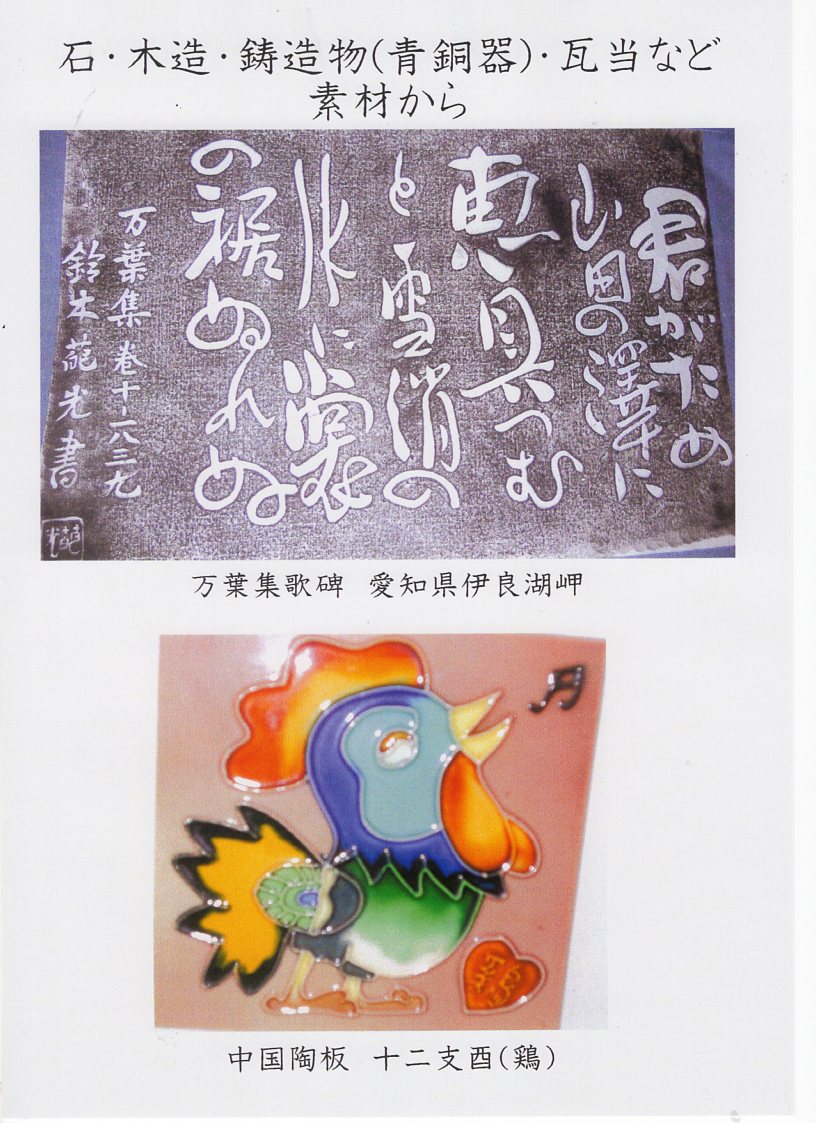 石・木造・鋳造物(青銅器)・瓦当など
素材から
君がため
山田の澤に
恵具つむ
と雪消の
水に裳
の裾ぬれぬ
万葉集巻十一八三九
鈴木光書
万葉集歌碑 愛知県伊良湖岬
中国陶板 十二支酉(鶏)